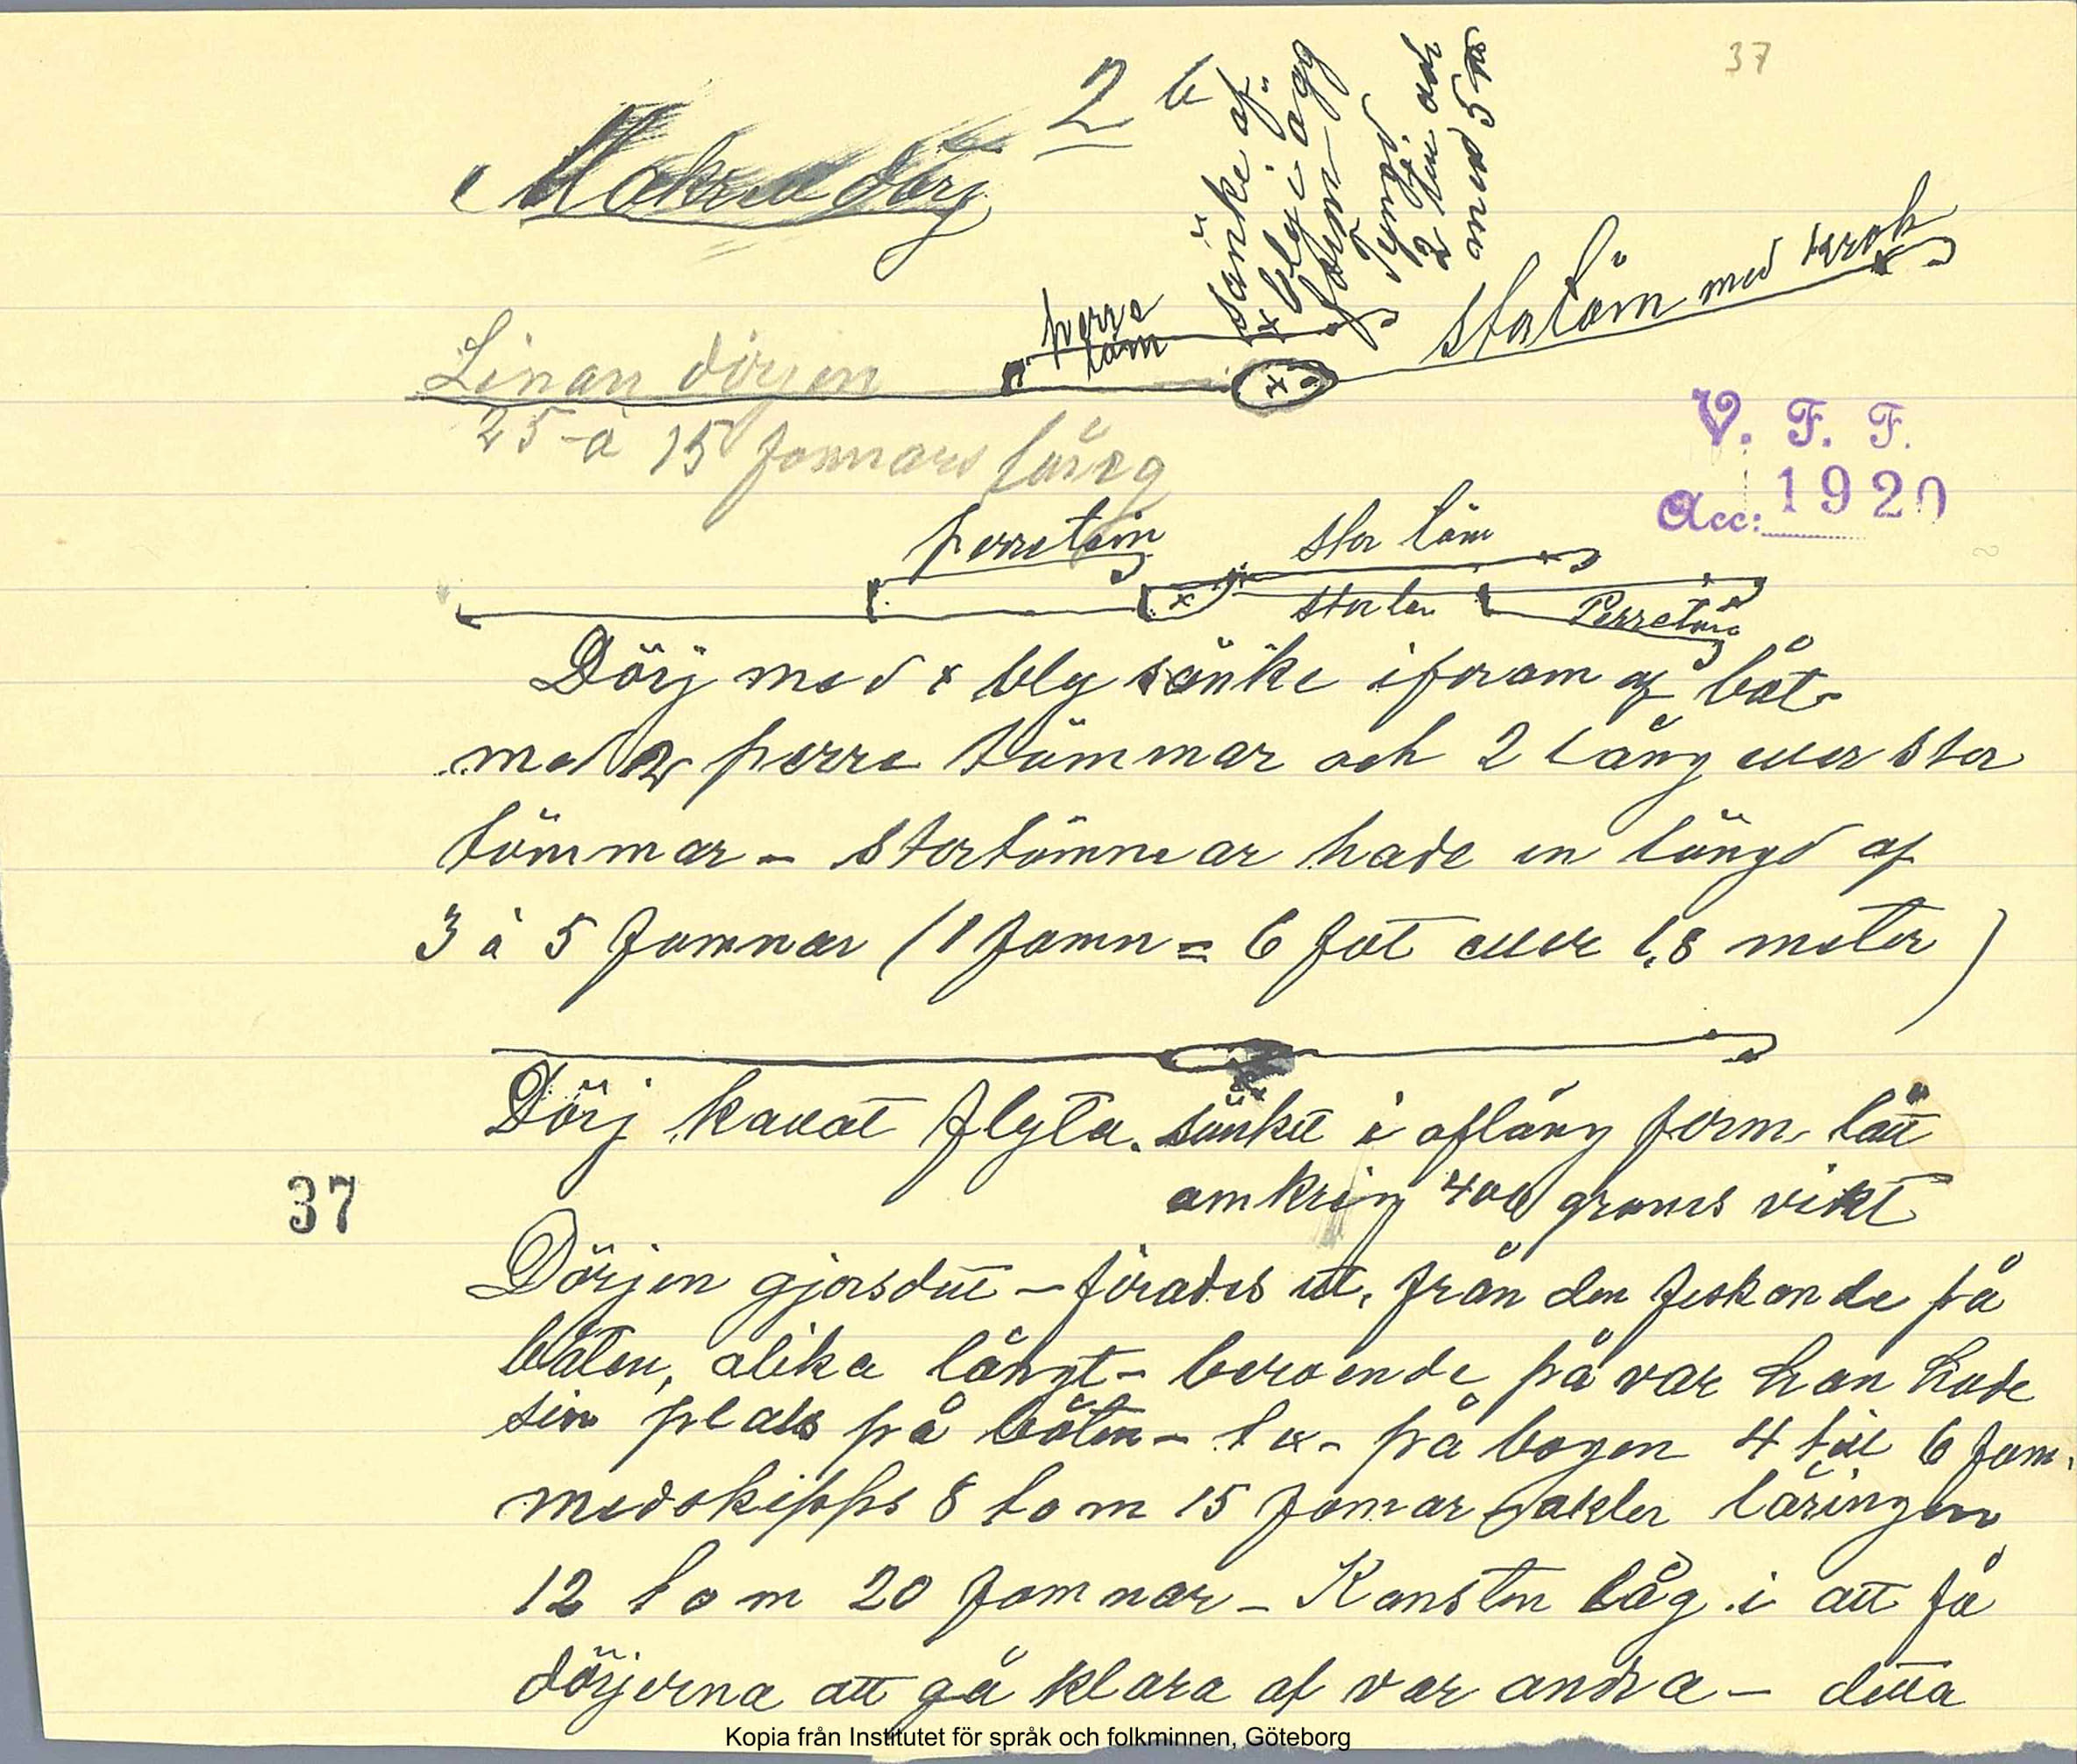 37
2 b
Makrildörj
sänke af
x bly i ägg
form -
Tyngd
2 ku och
med 5 m
perre
täm
stortäm med krok
Linan dörjen
25 à 15 famnars läng
V. F. F.
Acc: 1920
perretäm
stor täm
x
stor täm
Perretäm
Dörj med x bly sänke i foram af båt-
med 2 perre tömmar och 2 lång eller stor
tömmar - stortömmar hade en längd af
3 à 5 famnar (1 famn = 6 fot eller 1,8 meter)
Dörj kallat flyta. sänket i aflång form, lätt
omkring 400 grams vikt
37
Dörjen gjordes ut - förades ut, från den feskande på
båten, olika långt - beroende på var han hade
sin plads på båten - t ex - på bogen 4 till 6 fam.
medskipps 8 tom 15 famar akter låringen
12 tom 20 famnar - Konsten låg i att få
dörjerna att gå klara af var andra - detta
Kopia från Institutet för språk och folkminnen, Göteborg